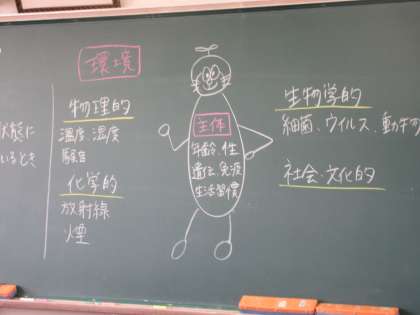 環境
状態に
いるとき
物理的
温度、湿度
騒音
化学的
放射線
煙
主体
年齢、性
遺伝、免疫
生活習慣
生物学的
細菌、ウイルス、動植物
社会・文化的